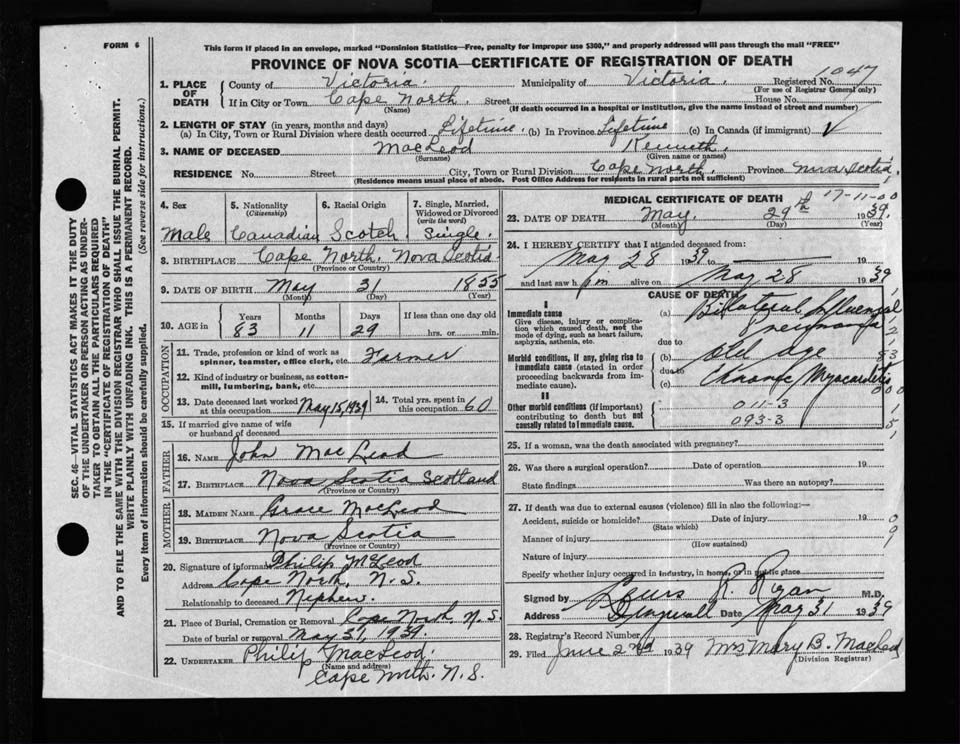 FORM 6
This form if placed in an envelope, marked "Dominion Statistics—Free, penalty for improper use $300," and properly addressed will pass through the mail "FREE"
PROVINCE OF NOVA SCOTIA—CERTIFICATE OF REGISTRATION OF DEATH
1. PLACE OF DEATH
County of Victoria. Municipality of Victoria. Registered No. 1047
(For use of Registrar General only)
If in City or Town Cape North. Street House No.
(Name) (If death occurred in a hospital or institution, give the name instead of street and number)
2. LENGTH OF STAY (in years, months and days)
(a) In City, Town or Rural Division where death occurred Lifetime. (b) In Province Lifetime (c) In Canada (if immigrant)
3. NAME OF DECEASED MacLeod Kenneth
(Surname) (Given name or names)
RESIDENCE No. Street City, Town or Rural Division Cape North. Province Nova Scotia
(Residence means usual place of abode. Post Office Address for residents in rural parts not sufficient)
4. Sex 5. Nationality (Citizenship) 6. Racial Origin 7. Single, Married, Widowed or Divorced (write the word)
Male Canadian Scotch. Single.
8. BIRTHPLACE Cape North. Nova Scotia
(Province or Country)
9. DATE OF BIRTH May 31 1855
(Month) (Day) (Year)
10. AGE in Years Months Days If less than one day
83 11 29 hrs. or min.
OCCUPATION
11. Trade, profession or kind of work as spinner, teamster, office clerk, etc. Farmer
12. Kind of industry or business, as cotton-mill, lumbering, bank, etc.
13. Date deceased last worked at this occupation May 15, 1939 14. Total yrs. spent in this occupation 60
15. If married give name of wife or husband of deceased
FATHER
16. NAME John MacLeod
17. BIRTHPLACE Nova Scotia Scotland
(Province or Country)
MOTHER
18. MAIDEN NAME Grace MacLeod
19. BIRTHPLACE Nova Scotia
(Province or Country)
20. Signature of informant Philip McLeod
Address Cape North, N.S.
Relationship to deceased Nephew.
21. Place of Burial, Cremation or Removal Cape North N.S.
Date of burial or removal May 31, 1939.
22. UNDERTAKER Philip MacLeod.
(Name and address)
Cape North. N.S.
MEDICAL CERTIFICATE OF DEATH 17-11-00
23. DATE OF DEATH May 29th 1939.
(Month) (Day) (Year)
24. I HEREBY CERTIFY that I attended deceased from:
May 28 1939 to 19
and last saw h alive on May 28 1939
CAUSE OF DEATH
I
Immediate cause
Give disease, injury or complication which caused death, not the mode of dying, such as heart failure, asphyxia, asthenia, etc.
(a) Bilateral Influenzal Pneumonia
due to
Morbid conditions, if any, giving rise to immediate cause (stated in order proceeding backwards from immediate cause).
(b) Old age 83
due to
(c) Chronic Myocarditis
II
Other morbid conditions (if important) contributing to death but not causally related to immediate cause.
011-3
093-3
25. If a woman, was the death associated with pregnancy?
26. Was there a surgical operation? Date of operation 19
State findings Was there an autopsy?
27. If death was due to external causes (violence) fill in also the following:—
Accident, suicide or homicide? Date of injury 19
(State which)
Manner of injury
(How sustained)
Nature of injury
Specify whether injury occurred in industry, in home, or in public place
Signed by R. Ryan M.D.
Address Dingwall Date May 31 1939
28. Registrar's Record Number
29. Filed June 2nd 1939 Mrs Mary B. MacLeod
(Division Registrar)
SEC. 46—VITAL STATISTICS ACT MAKES IT THE DUTY
OF THE UNDERTAKER OR PERSON ACTING AS UNDER-
TAKER TO OBTAIN ALL THE PARTICULARS REQUIRED
IN THE "CERTIFICATE OF REGISTRATION OF DEATH"
AND TO FILE THE SAME WITH THE DIVISION REGISTRAR WHO SHALL ISSUE THE BURIAL PERMIT.
WRITE PLAINLY WITH UNFADING INK. THIS IS A PERMANENT RECORD.
Every item of information should be carefully supplied. (See reverse side for instructions.)